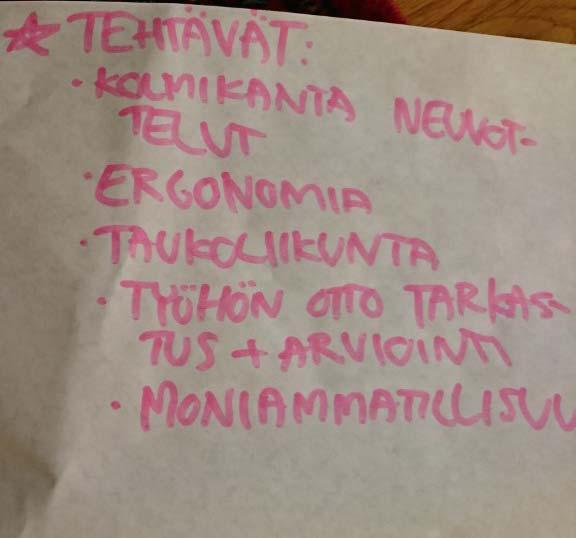 ☆ TEHTÄVÄT:
· KOLMIKANTA NEUVOT-
TELUT
· ERGONOMIA
· TAUKOLIIKUNTA
· TYÖHÖN OTTO TARKAS-
TUS + ARVIOINTI
· MONIAMMATILLISUU